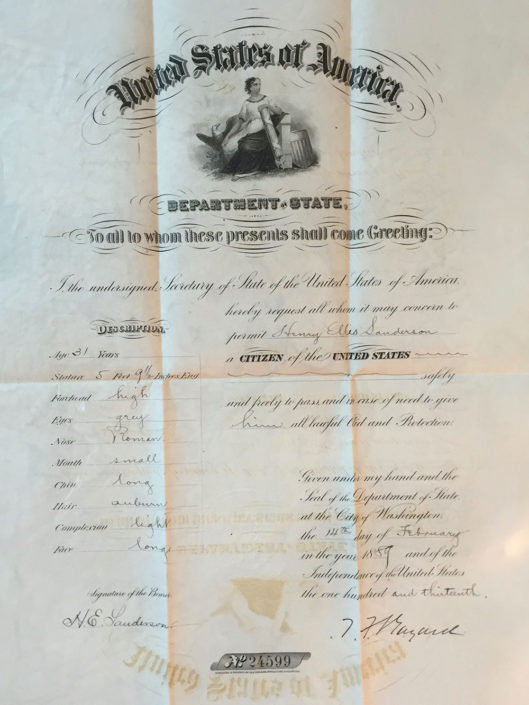 United States of America.
DEPARTMENT OF STATE,
To all to whom these presents shall come Greeting:
I, the undersigned, Secretary of State of the United States of America,
hereby request all whom it may concern to
permit Henry Sanderson
a CITIZEN of the UNITED STATES
safely
and freely to pass, and in case of need to give
him all lawful Aid and Protection.
DESCRIPTION.
Age 31 Years
Stature 5 Feet 9½ Inches Eng
Forehead high
Eyes grey
Nose Roman
Mouth small
Chin long
Hair auburn
Complexion light
Face long
Signature of the Bearer
H. E. Sanderson
Given under my hand and the
Seal of the Department of State,
at the City of Washington,
the 14th day of February
in the year 1889 and of the
Independence of the United States
the one hundred and thirteenth.
T. F. Bayard
No 24599